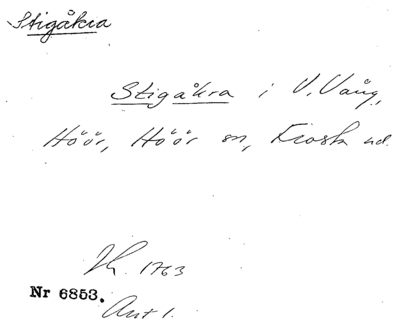 Stigåkra
Stigåkra i V. Vång,
Höör, Höör sn, Frosta hd.
1763
Nr 6853.
Akt 1.